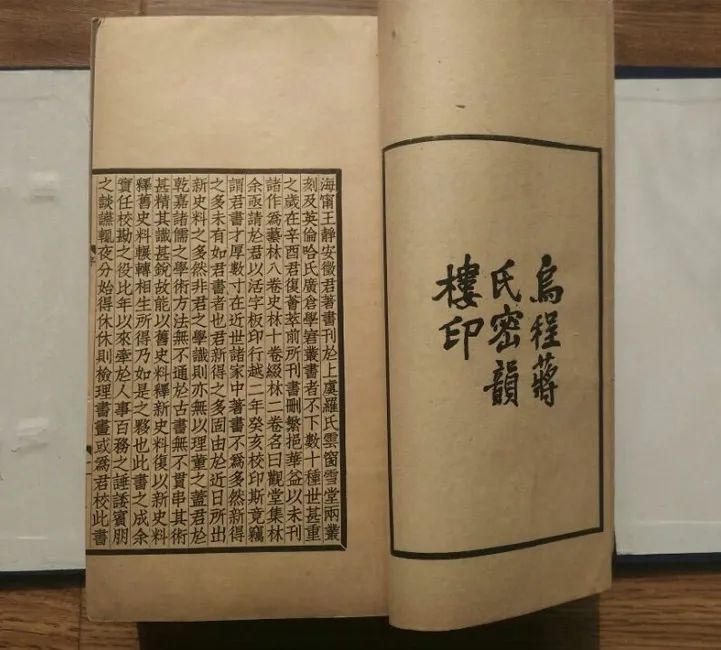 烏程蔣
氏密韻
樓印
海甯王靜安徵君著書刊於上虞羅氏雲窗雪堂兩叢
刻及英倫哈氏廣倉學宭叢書者不下數十種世甚重
之歲在辛酉君復薈萃前所刊書刪繁挹華益以未刊
諸作爲藝林八卷史林十卷綴林二卷名曰觀堂集林
余亟請於君以活字板印行越二年癸亥校印斯竟竊
謂君書才厚數寸在近世諸家中著書不爲多然新得
之多未有如君書者也君新得之多固由於近日所出
新史料之多然非君之學識則亦無以理董之蓋君於
乾嘉諸儒之學術方法無不通於古書無不貫串其術
甚精其識甚銳故能以舊史料釋新史料復以新史料
釋舊史料輾轉相生所得乃如是之夥也此書之成余
實任校勘之役比年以來牽於人事百務之諈諉賓朋
之談讌輒夜分始得休休則檢理書畫或爲君校此書